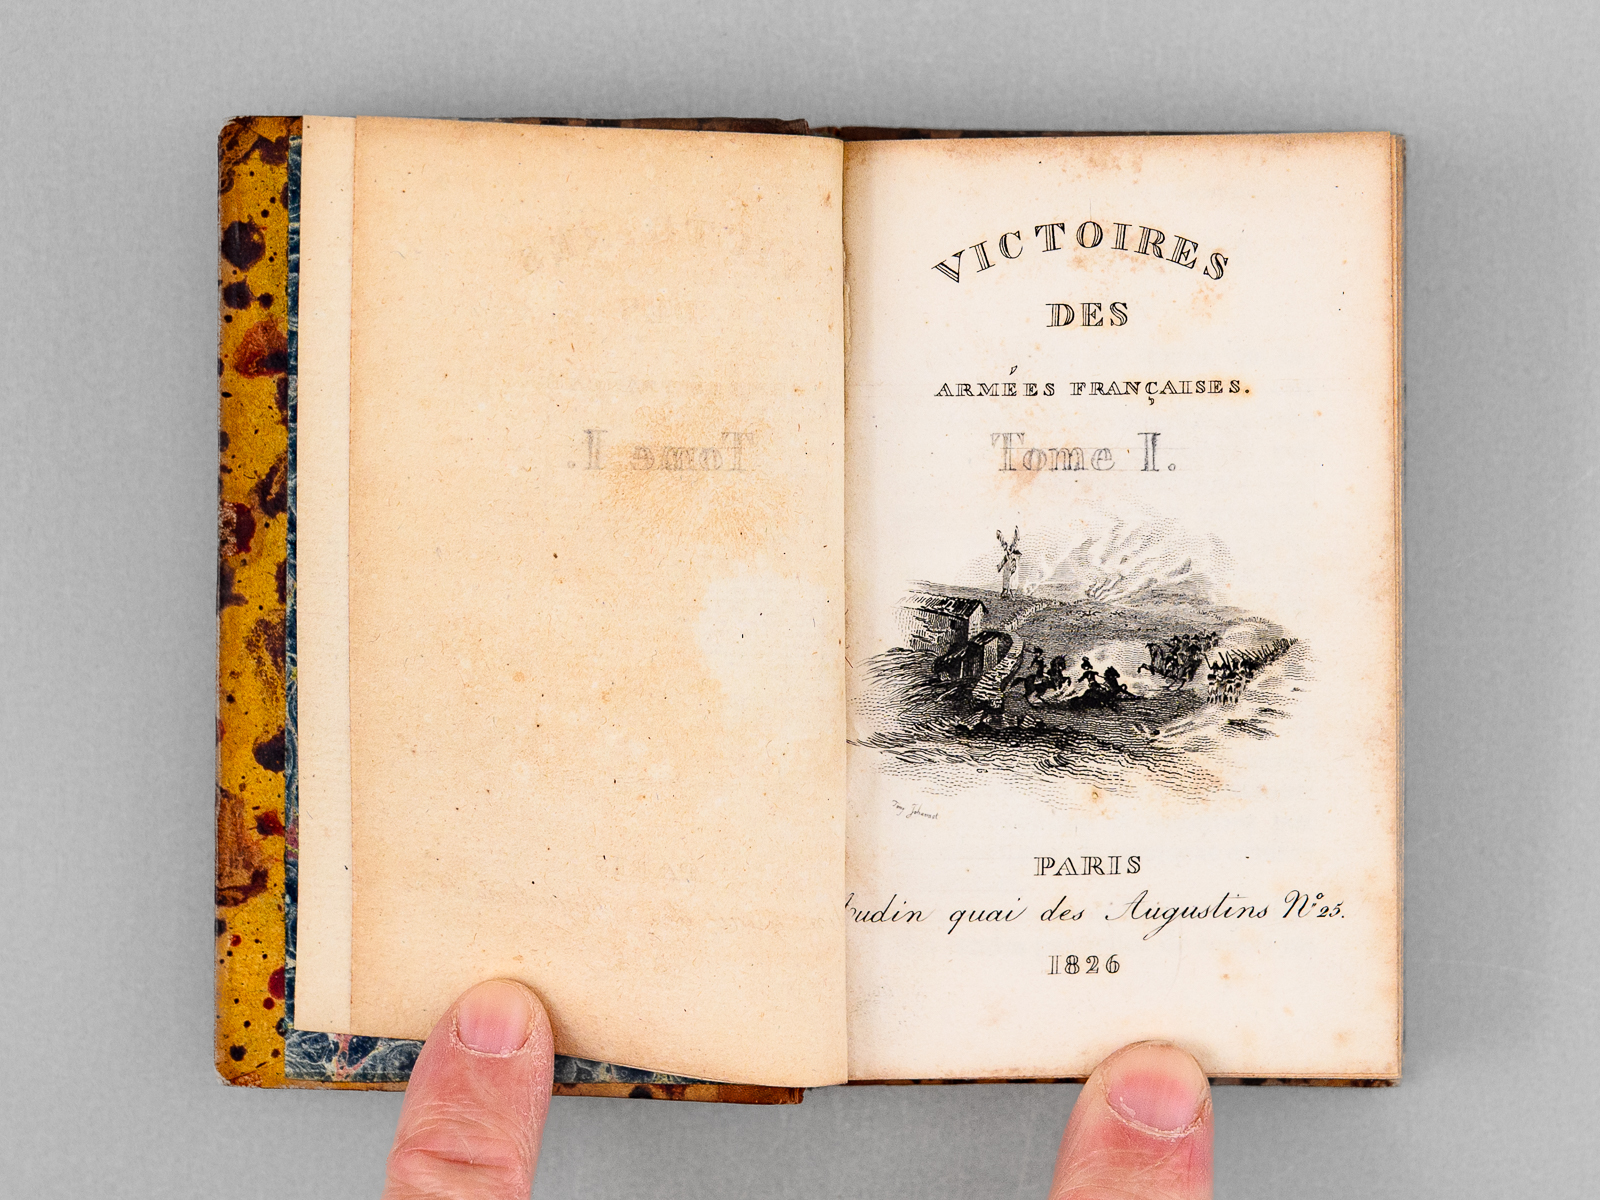 VICTOIRES
DES
ARMÉES FRANÇAISES.
Tome I.
Tony Johannot
PARIS
Audin quai des Augustins Nº 25.
1826